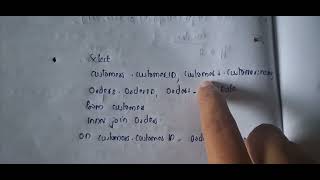 Select
Customers.CustomerID, Customers.Customername
Orders.OrderID, Orders.
from customers
Inner join Orders
ON Customers.CustomerID =